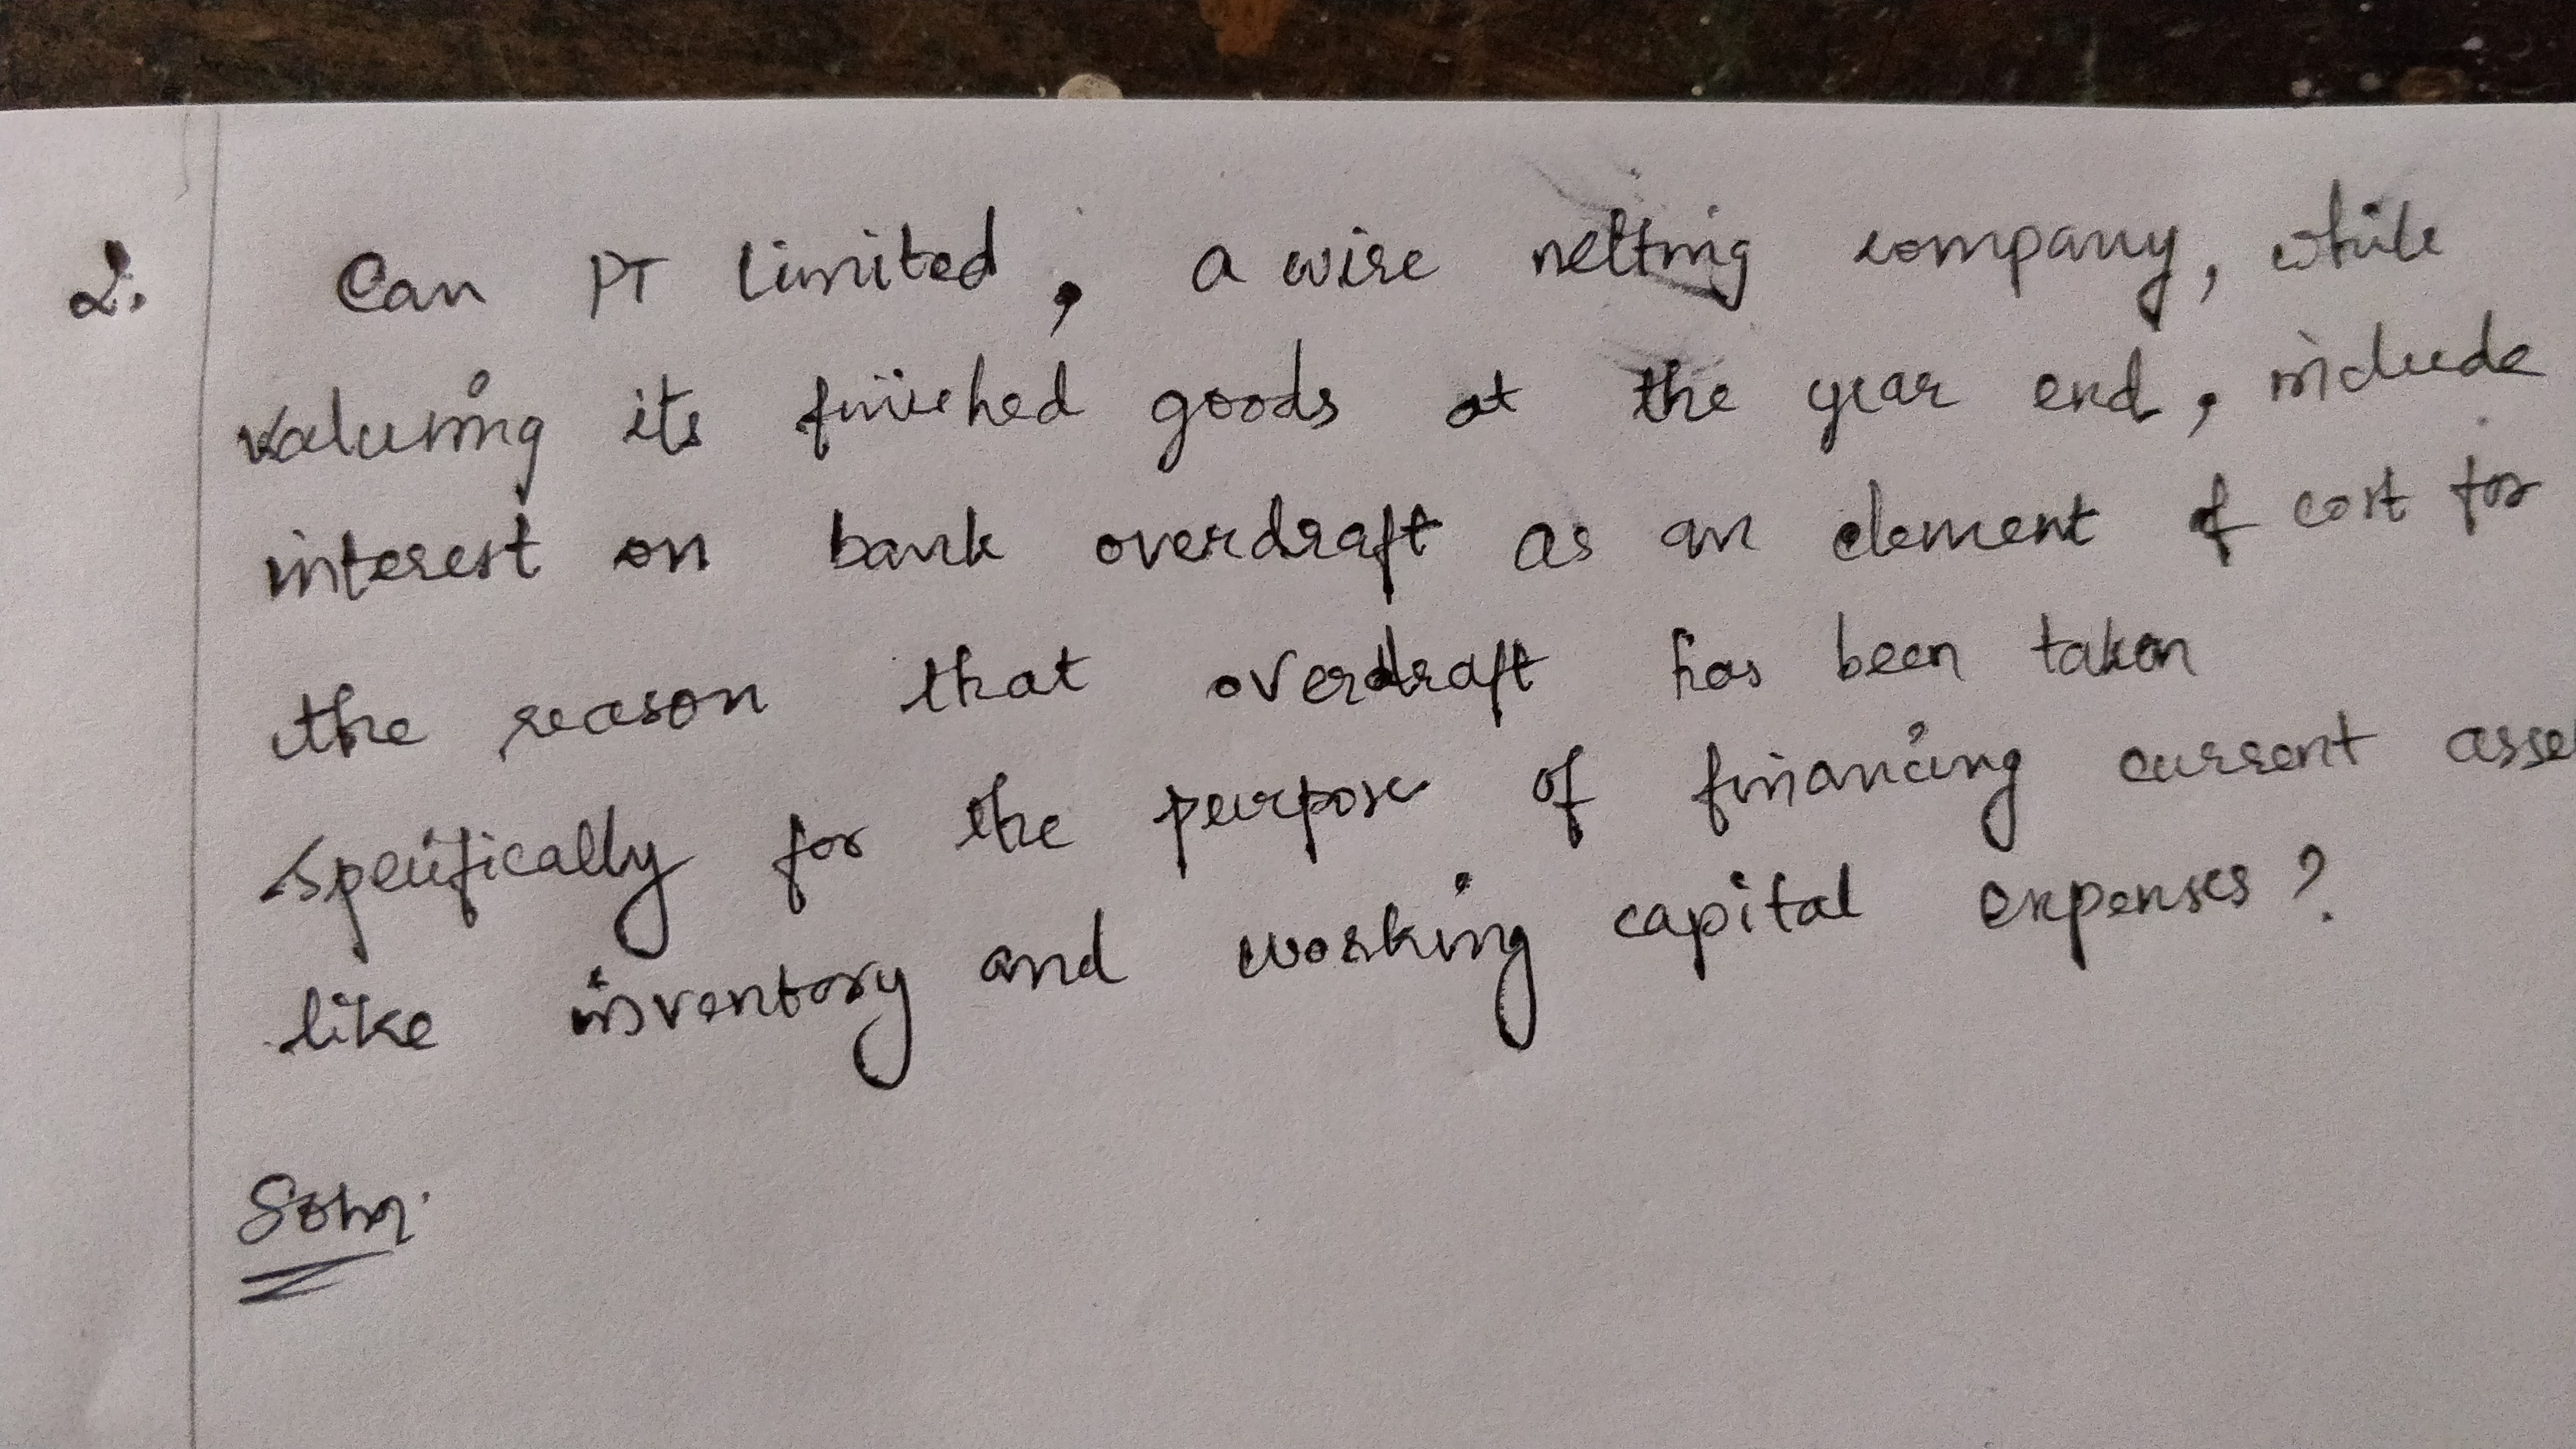 2. Can PT Limited, a wire netting company, while
valuing its finished goods at the year end, include
interest on bank overdraft as an element of cost for
the reason that overdraft has been taken
specifically for the purpose of financing current asse
like inventory and working capital expenses?
Soln.